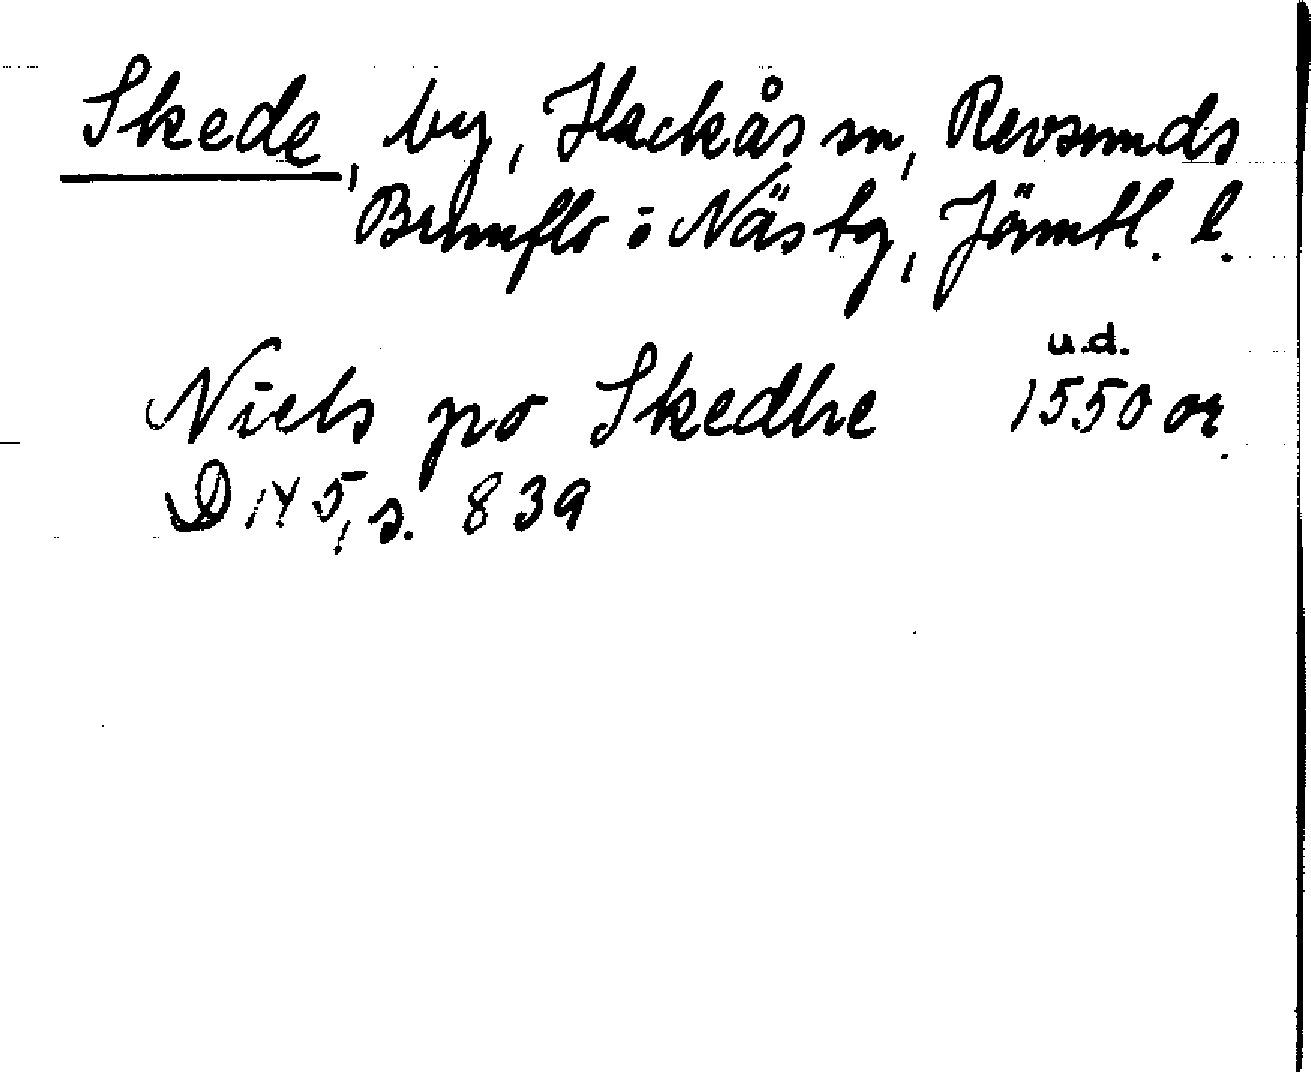 Skede, by, Hackås sn, Revsunds
Brunflo o Näs tg, Jämtl. l.
u.d.
Niels po Skedhe 1550 or.
D 145, s. 839